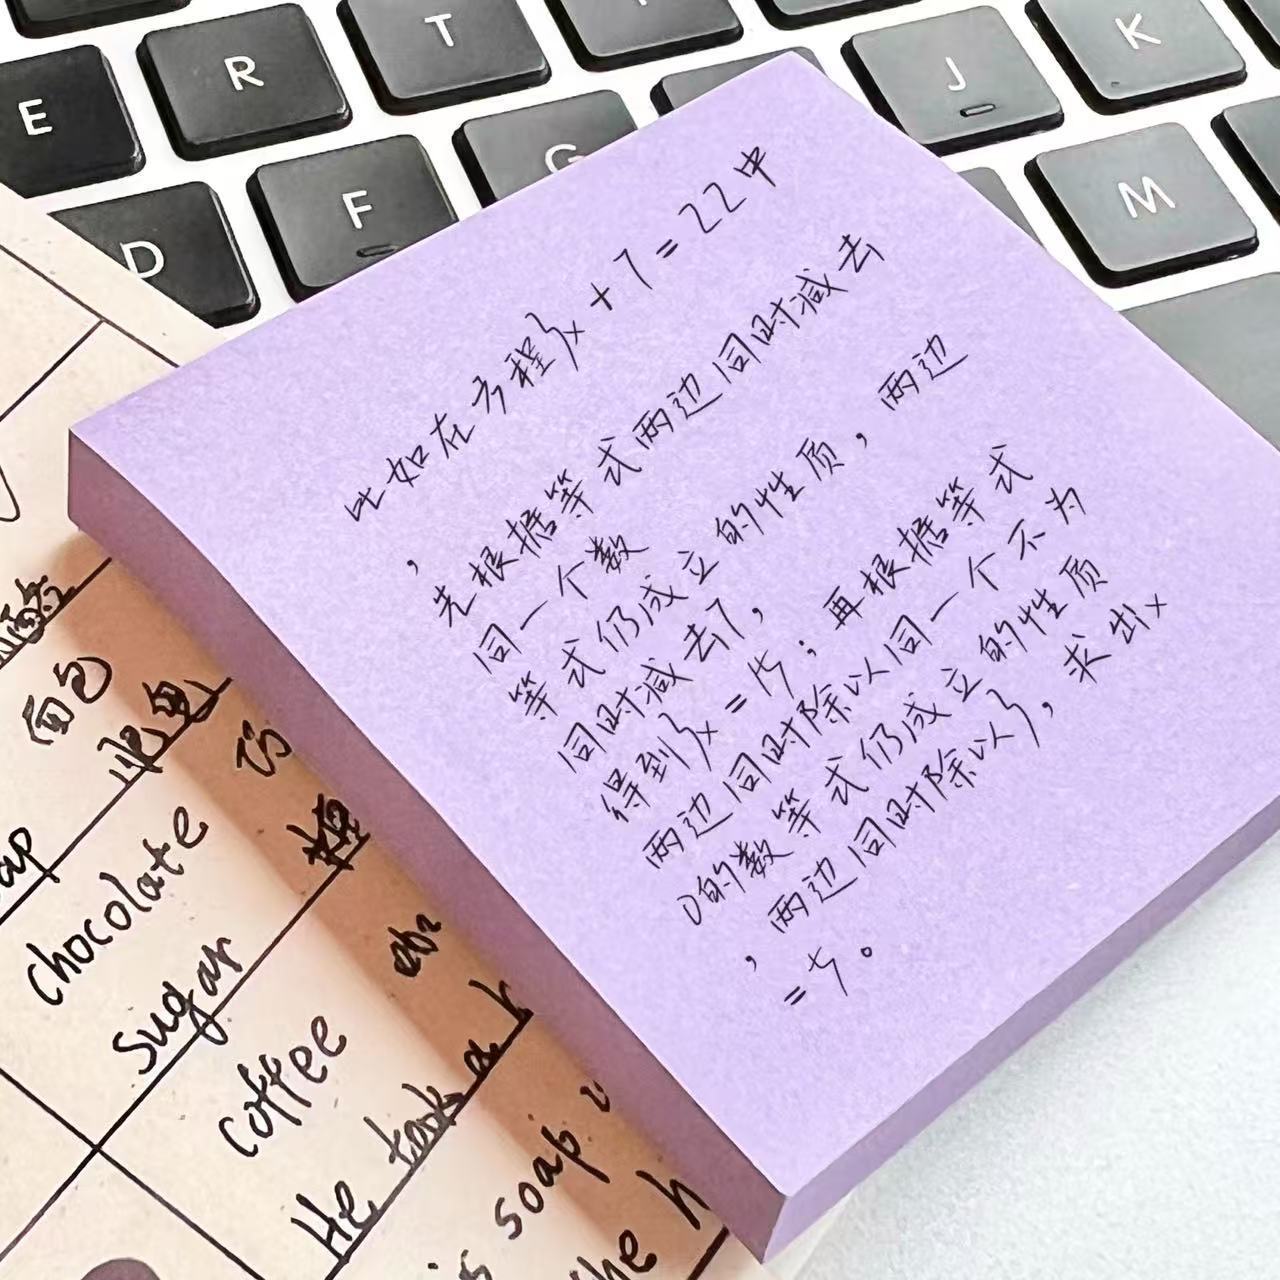 E
R
T
J
K
D
F
G
M
比如在方程3x+7=22中
,先根据等式两边同时减去
同一个数
等式仍成立的性质,两边
同时减去7,
得到3x=15;再根据等式
两边同时除以同一个不为
0的数等式仍成立的性质
,两边同时除以3,求出x
=5。
面包
chocolate
sugar
coffee
He took a
is soap
the h